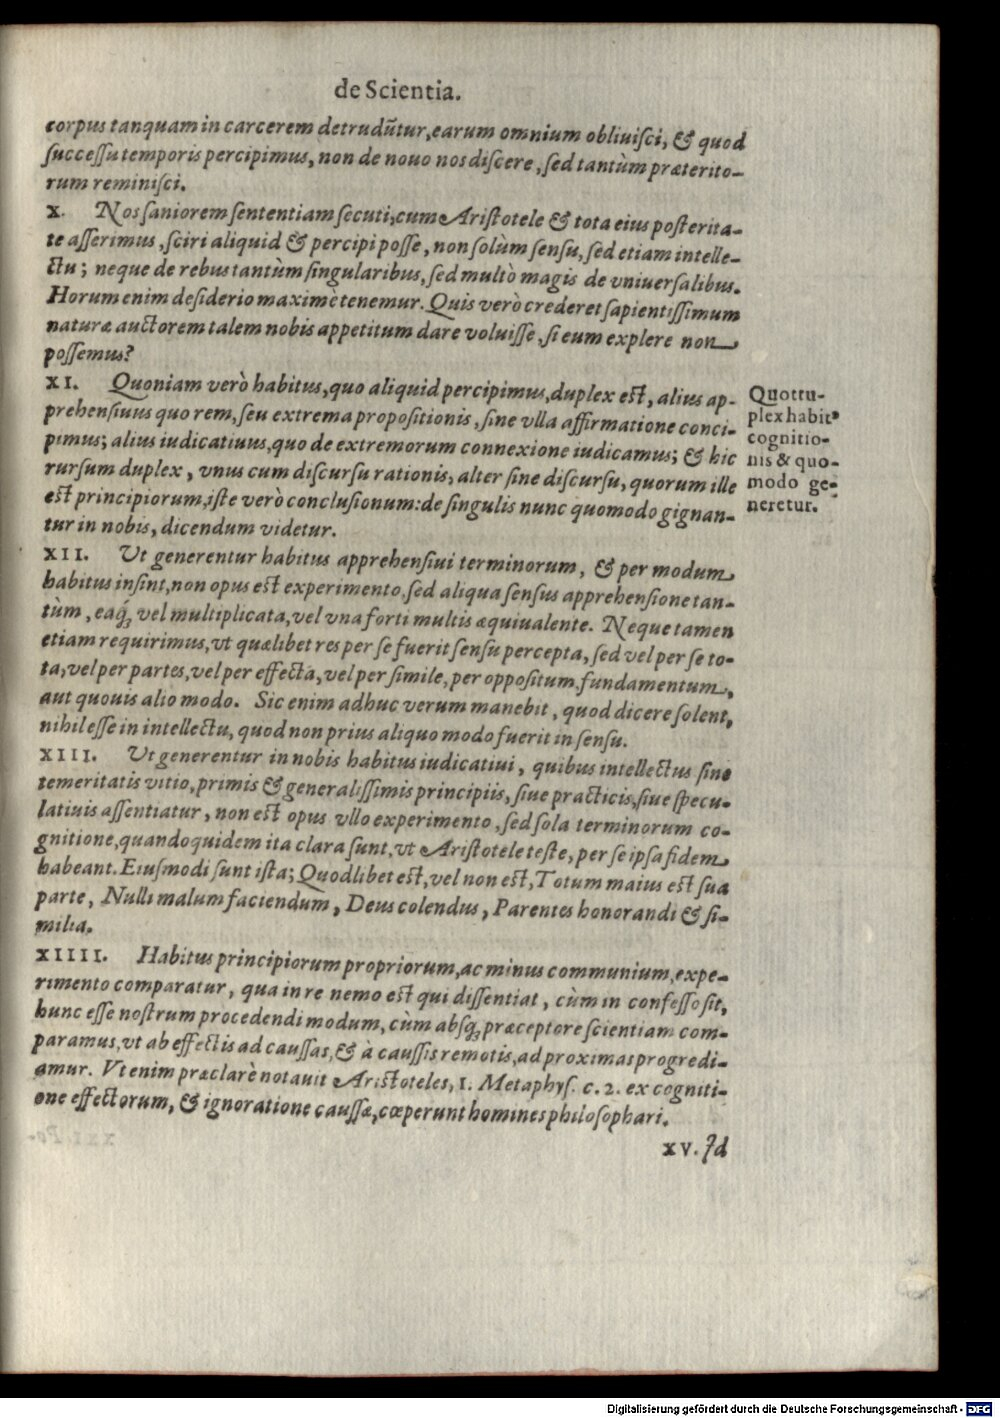 de Scientia.
corpus tanquam in carcerem detrudũtur, earum omnium obliuisci, & quod
successu temporis percipimus, non de nouo nos discere, sed tantùm præterito-
rum reminisci.
X. Nos saniorem sententiam secuti, cum Aristotele & tota eius posterita-
te asserimus, sciri aliquid & percipi posse, non solùm sensu, sed etiam intelle-
ctu; neque de rebus tantùm singularibus, sed multò magis de vniuersalibus.
Horum enim desiderio maxime tenemur. Quis verò crederet sapientissimum
naturæ auctorem talem nobis appetitum dare voluisse, si eum explere non
possemus?
XI. Quoniam verò habitus, quo aliquid percipimus, duplex est, alius ap-
prehensiuus quo rem, seu extrema propositionis, sine vlla affirmatione conci-
pimus; alius iudicatiuus, quo de extremorum connexione iudicamus; & hic
rursum duplex, vnus cum discursu rationis, alter sine discursu, quorum ille
est principiorum, iste verò conclusionum: de singulis nunc quomodo gignan-
tur in nobis, dicendum videtur.
Quottu-
plex habit⁹
cognitio-
nis & quo-
modo ge-
neretur.
XII. Ut generentur habitus apprehensiui terminorum, & per modum
habitus insint, non opus est experimento, sed aliqua sensus apprehensione tan-
tùm, eaq́; vel multiplicata, vel vna forti multis æquiualente. Neque tamen
etiam requirimus, vt quælibet res per se fuerit sensu percepta, sed vel per se to-
ta, vel per partes, vel per effecta, vel per simile, per oppositum, fundamentum,
aut quouis alio modo. Sic enim adhuc verum manebit, quod dicere solent,
nihil esse in intellectu, quod non prius aliquo modo fuerit in sensu.
XIII. Ut generentur in nobis habitus iudicatiui, quibus intellectus sine
temeritatis vitio, primis & generalissimis principiis, siue practicis, siue specu-
latiuis assentiatur, non est opus vllo experimento, sed sola terminorum co-
gnitione, quandoquidem ita clara sunt, vt Aristotele teste, per se ipsa fidem
habeant. Eiusmodi sunt ista; Quodlibet est, vel non est, Totum maius est sua
parte, Nulli malum faciendum, Deus colendus, Parentes honorandi & si-
milia.
XIIII. Habitus principiorum propriorum, ac minus communium, expe-
rimento comparatur, qua in re nemo est qui dissentiat, cùm in confesso sit,
hunc esse nostrum procedendi modum, cùm absq; præceptore scientiam com-
paramus, vt ab effectis ad caussas, & à caussis remotis, ad proximas progredi-
amur. Vt enim præclarè notauit Aristoteles, 1. Metaphys. c. 2. ex cogniti-
one effectorum, & ignoratione caussæ, cœperunt homines philosophari.
XV. Id
Digitalisierung gefördert durch die Deutsche Forschungsgemeinschaft - DFG